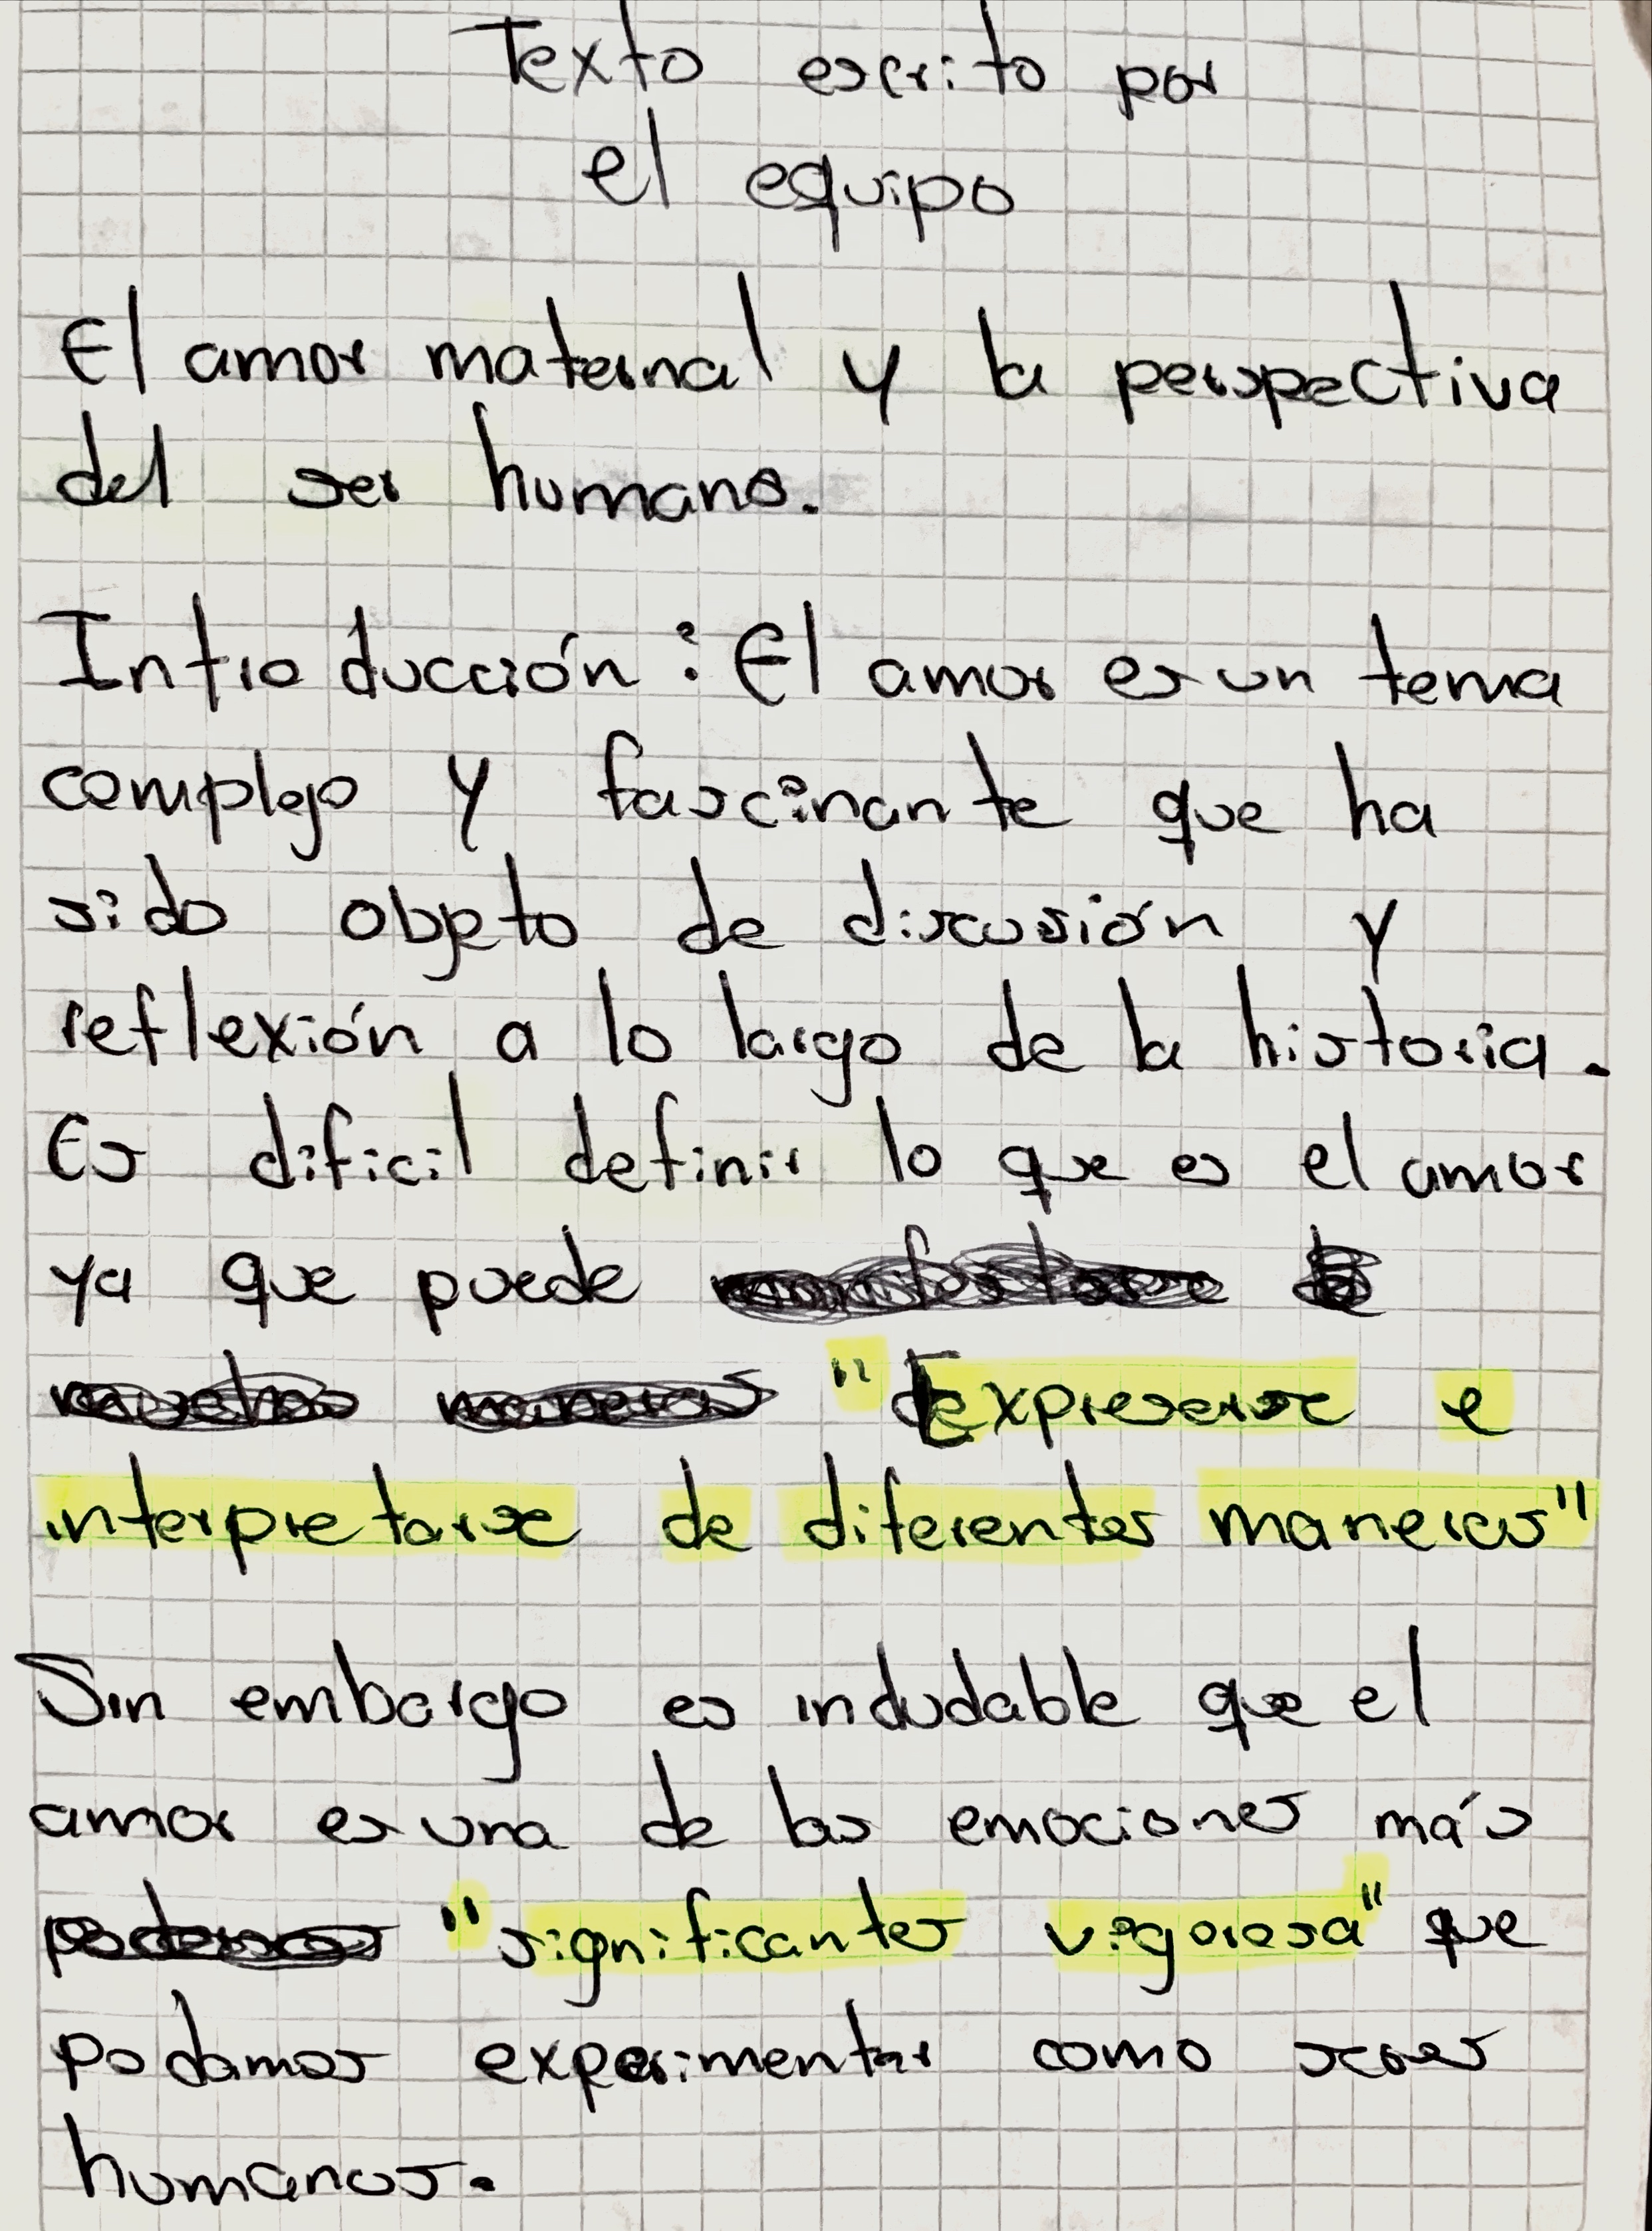 Texto escrito por
el equipo
El amor maternal y la perspectiva
del ser humano.
Introducción: El amor es un tema
complejo y fascinante que ha
sido objeto de discusión y
reflexión a lo largo de la historia.
Es dificil definir lo que es el amor
ya que puede
"Expresarse e
interpretarse de diferentes maneras"
Sin embargo es indudable que el
amor es una de las emociones más
"significantes vigorosa" que
podamos experimentar como seres
humanos.